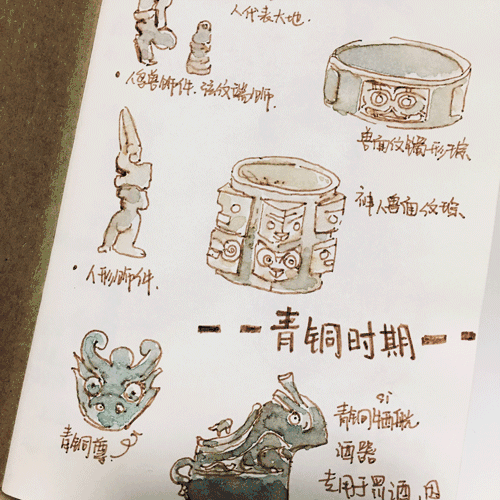 人代表大地.
·人鸟兽饰件.弦纹端饰.
兽面纹镯形琮.
神人兽面纹琮.
·人形饰件.
--青铜时期--
青铜尊.
青铜牺觥
酒器
专用于罚酒.用